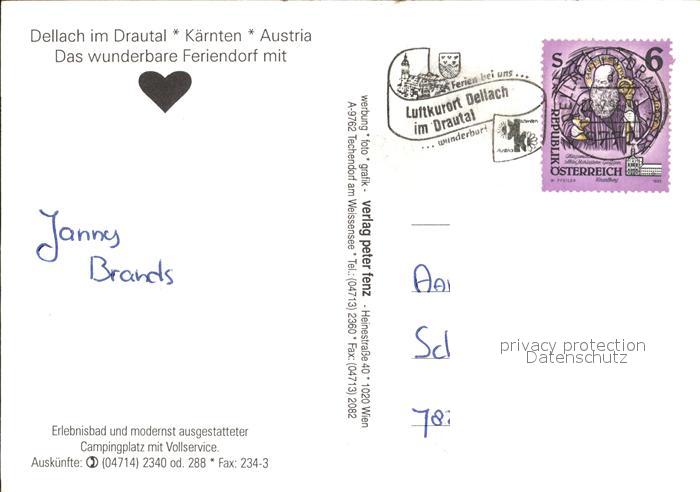 Dellach im Drautal * Kärnten * Austria
Das wunderbare Feriendorf mit
Ferien bei uns ...
Luftkurort Dellach
im Drautal
... wunderbar!
S 6
REPUBLIK
ÖSTERREICH
werbung * foto * grafik - verlag peter fenz - Heinestraße 40 * 1020 Wien
A-9762 Techendorf am Weissensee * Tel.: (04713) 2360 * Fax: (04713) 2082
Janny
Brands
privacy protection
Datenschutz
Erlebnisbad und modernst ausgestatteter
Campingplatz mit Vollservice.
Auskünfte: (04714) 2340 od. 288 * Fax: 234-3